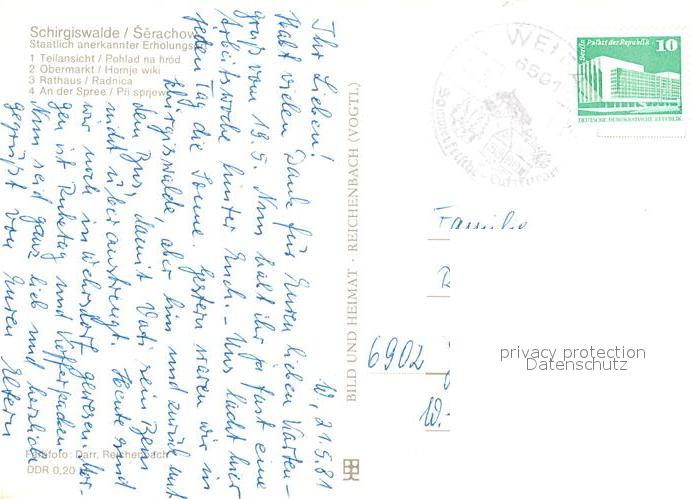 Schirgiswalde / Šěrachow
Staatlich anerkannter Erholungsort
1 Teilansicht / Pohlad na hród
2 Obermarkt / Hornje wiki
3 Rathaus / Radnica
4 An der Spree / Při sprjewje
W, 21.5.81
Ihr Lieben!
Habt vielen Dank für Euren lieben Karten-
gruß vom 19.5. Nun habt ihr ja fast eine
Arbeitswoche hinter Euch. – Uns lacht hier
jeden Tag die Sonne. Gestern waren wir in
Schirgiswalde, aber hin und zurück mit
dem Bus, damit Vati sein Bein
nicht überanstrengt. Heute sind
wir noch in Wehrsdorf gewesen. Mor-
gen ist Ruhetag und Kofferpacken.
Nun seid ganz lieb und herzlich
gegrüßt von Euren Eltern
Farbfoto: Darr, Reichenbach
DDR 0,20
BILD UND HEIMAT · REICHENBACH (VOGTL)
6501
Berlin Palast der Republik
10
DEUTSCHE DEMOKRATISCHE REPUBLIK
Familie
6902
W.-
privacy protection
Datenschutz